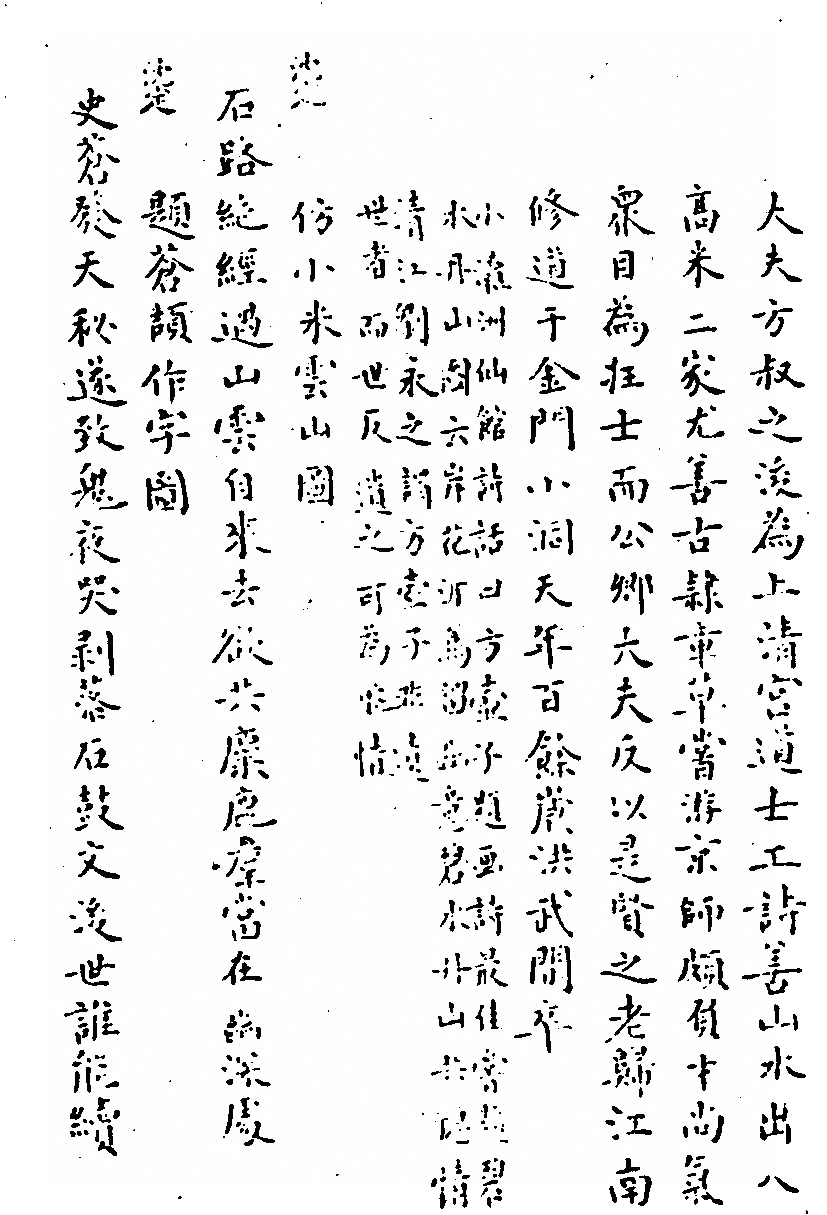 大夫方叔之後為上清宮道士工詩善山水出入
高米二家尤善古隸章草嘗游京師頗負才尚氣
眾目為狂士而公卿大夫反以是賢之老歸江南
修道于金門小洞天年百餘歲洪武間卒
小滄洲仙館詩話曰方壺子題畫詩最佳嘗題碧
水丹山圖云岸花汀鳥得幽意碧水丹山共情
清江劉永之謂方壺子非遺
世者而世反遺之可為惜
仿小米雲山圖
石路絕經過山雲自來去欲共麋鹿羣當在幽深處
題蒼頡作字圖
史蒼發天秘遂致鬼夜哭剝落石鼓文後世誰能續